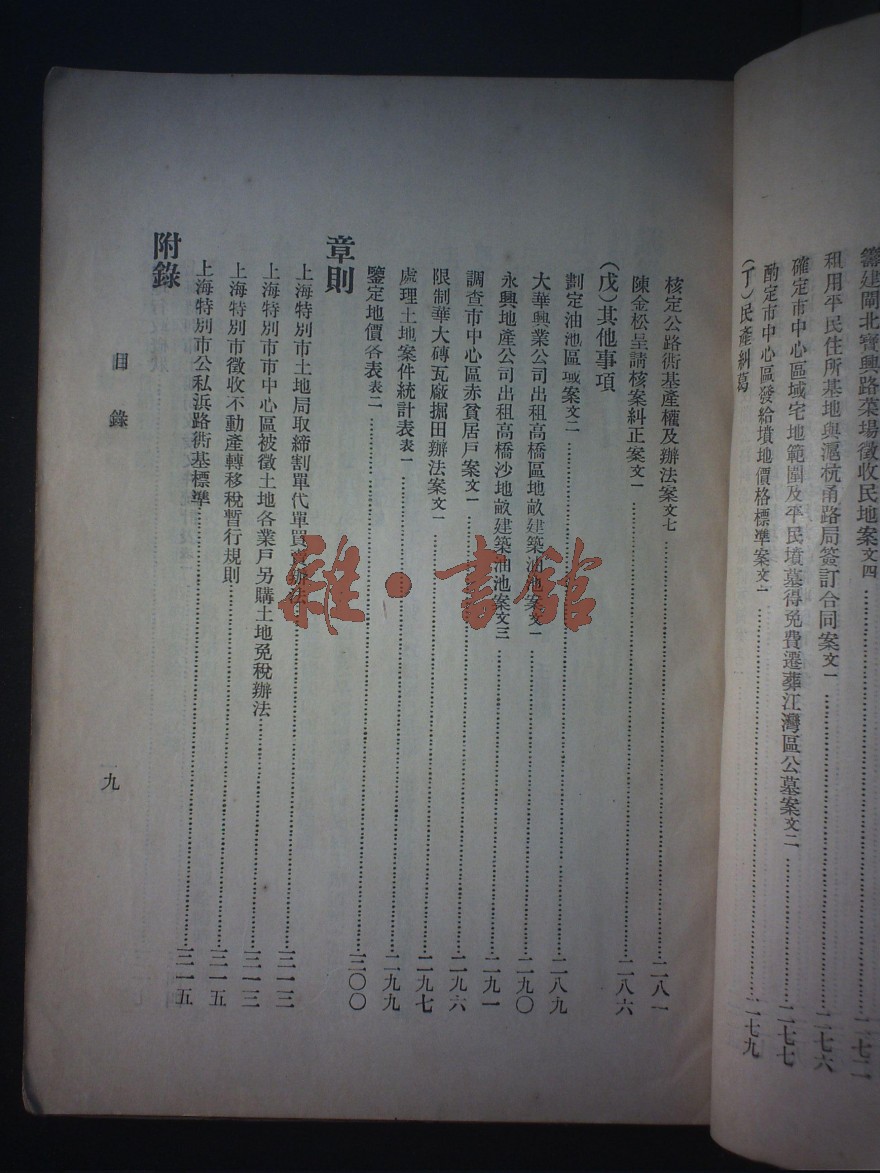 籌建閘北寶興路菜場徵收民地案文四……二七二
租用平民住所基地與滬杭甬路局簽訂合同案文一……二七六
確定市中心區域宅地範圍及平民墳墓得免費遷葬江灣區公墓案文二……二七七
酌定市中心區發給墳地價格標準案文一……二七九
(丁)民產糾葛
核定公路街基產權及辦法案文七……二八一
陳金松呈請核案糾正案文一……二八六
(戊)其他事項
劃定油池區域案文二……二八九
大華興業公司出租高橋區地畝建築油池案文一……二九〇
永興地產公司出租高橋沙地畝建築油池案文三……二九一
調查市中心區赤貧居戶案文一……二九六
限制華大磚瓦廠掘田辦法案文一……二九七
處理土地案件統計表表一……二九九
鑒定地價各表表二……三〇〇
章則
上海特別市土地局取締割單代單買賣辦法……三一三
上海特別市市中心區被徵土地各業戶另購土地免稅辦法……三一三
上海特別市徵收不動產轉移稅暫行規則……三一五
上海特別市公私浜路街基標準……三一五
附錄
目錄
九
雜·書館